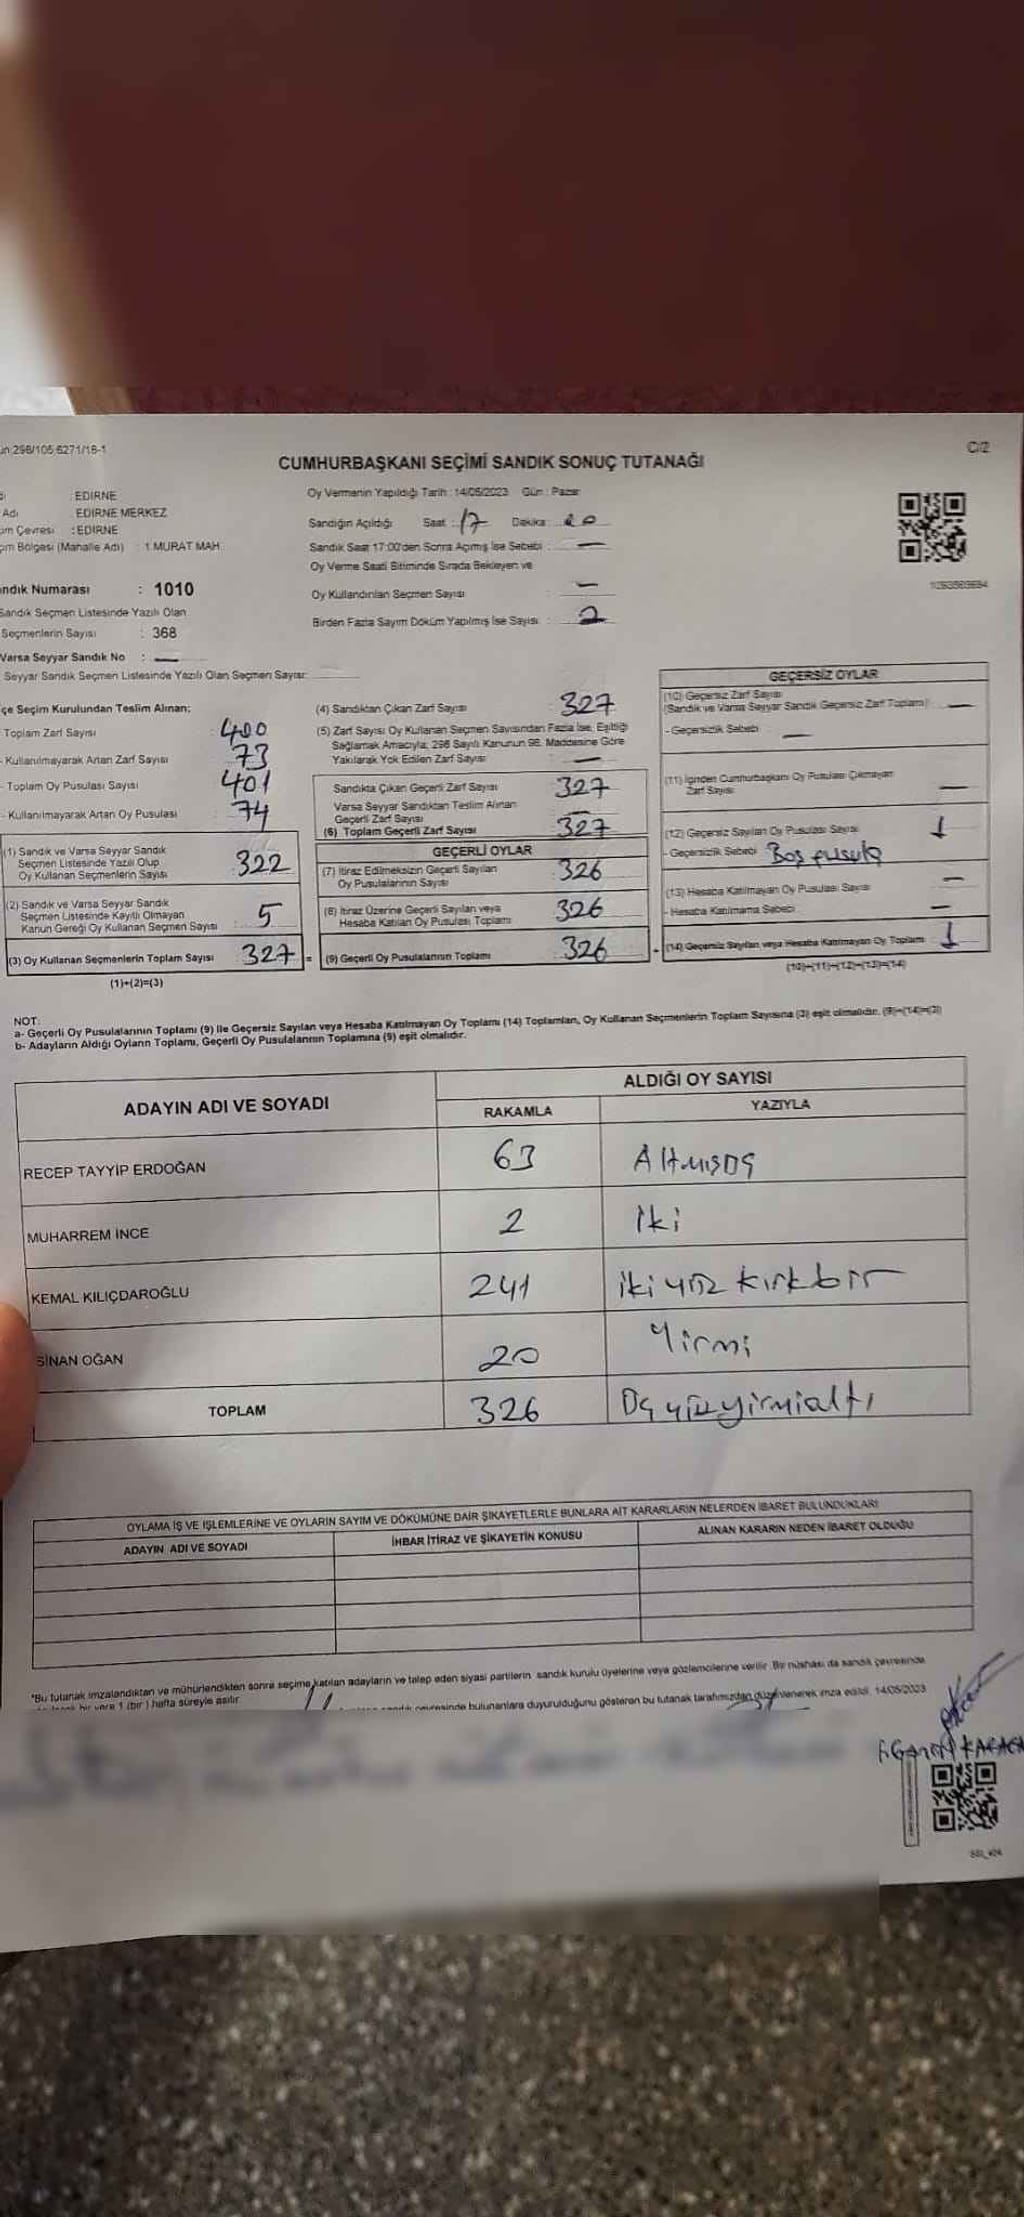 298/105 6271/16-1
C/2
CUMHURBAŞKANI SEÇİMİ SANDIK SONUÇ TUTANAĞI
: EDİRNE
Adı : EDİRNE MERKEZ
Çevresi : EDİRNE
Bölgesi (Mahalle Adı) : 1.MURAT MAH.
Numarası : 1010
Sandık Seçmen Listesinde Yazılı Olan
Seçmenlerin Sayısı : 368
Varsa Seyyar Sandık No : —
Seyyar Sandık Seçmen Listesinde Yazılı Olan Seçmen Sayısı:
Oy Vermenin Yapıldığı Tarih : 14/05/2023 Gün : Pazar
Sandığın Açıldığı Saat : 17 Dakika : 20
Sandık Saat 17:00'den Sonra Açılmış İse Sebebi : —
Oy Verme Saati Bitiminde Sırada Bekleyen ve
Oy Kullandırılan Seçmen Sayısı : —
Birden Fazla Sayım Döküm Yapılmış İse Sayısı : 2
Seçim Kurulundan Teslim Alınan;
Toplam Zarf Sayısı : 400
- Kullanılmayarak Artan Zarf Sayısı : 73
- Toplam Oy Pusulası Sayısı : 401
- Kullanılmayarak Artan Oy Pusulası : 74
(1) Sandık ve Varsa Seyyar Sandık
Seçmen Listesinde Yazılı Olup
Oy Kullanan Seçmenlerin Sayısı 322
(2) Sandık ve Varsa Seyyar Sandık
Seçmen Listesinde Kayıtlı Olmayan
Kanun Gereği Oy Kullanan Seçmen Sayısı 5
(3) Oy Kullanan Seçmenlerin Toplam Sayısı 327 =
(1)+(2)=(3)
(4) Sandıktan Çıkan Zarf Sayısı : 327
(5) Zarf Sayısı Oy Kullanan Seçmen Sayısından Fazla İse, Eşitliği
Sağlamak Amacıyla; 298 Sayılı Kanunun 98. Maddesine Göre
Yakılarak Yok Edilen Zarf Sayısı : —
Sandıkta Çıkan Geçerli Zarf Sayısı : 327
Varsa Seyyar Sandıktan Teslim Alınan
Geçerli Zarf Sayısı : —
(6) Toplam Geçerli Zarf Sayısı : 327
GEÇERLİ OYLAR
(7) İtiraz Edilmeksizin Geçerli Sayılan
Oy Pusulalarının Sayısı : 326
(8) İtiraz Üzerine Geçerli Sayılan veya
Hesaba Katılan Oy Pusulası Toplamı : 326
(9) Geçerli Oy Pusulalarının Toplamı 326
GEÇERSİZ OYLAR
(10) Geçersiz Zarf Sayısı
(Sandık ve Varsa Seyyar Sandık Geçersiz Zarf Toplamı) : —
- Geçersizlik Sebebi : —
(11) İçinden Cumhurbaşkanı Oy Pusulası Çıkmayan
Zarf Sayısı : —
(12) Geçersiz Sayılan Oy Pusulası Sayısı 1
- Geçersizlik Sebebi Boş pusula
(13) Hesaba Katılmayan Oy Pusulası Sayısı —
- Hesaba Katılmama Sebebi —
(14) Geçersiz Sayılan veya Hesaba Katılmayan Oy Toplamı 1
(10)+(11)+(12)+(13)=(14)
NOT:
a- Geçerli Oy Pusulalarının Toplamı (9) ile Geçersiz Sayılan veya Hesaba Katılmayan Oy Toplamı (14) Toplamları, Oy Kullanan Seçmenlerin Toplam Sayısına (3) eşit olmalıdır. (9)+(14)=(3)
b- Adayların Aldığı Oyların Toplamı, Geçerli Oy Pusulalarının Toplamına (9) eşit olmalıdır.
ADAYIN ADI VE SOYADI ALDIĞI OY SAYISI
RAKAMLA YAZIYLA
RECEP TAYYİP ERDOĞAN 63 Altmışüç
MUHARREM İNCE 2 İki
KEMAL KILIÇDAROĞLU 241 ikiyüz kırkbir
SİNAN OĞAN 20 Yirmi
TOPLAM 326 Üçyüzyirmialtı
OYLAMA İŞ VE İŞLEMLERİNE VE OYLARIN SAYIM VE DÖKÜMÜNE DAİR ŞİKAYETLERLE BUNLARA AİT KARARLARIN NELERDEN İBARET BULUNDUKLARI
ADAYIN ADI VE SOYADI İHBAR İTİRAZ VE ŞİKAYETİN KONUSU ALINAN KARARIN NEDEN İBARET OLDUĞU
*Bu tutanak imzalandıktan ve mühürlendikten sonra seçime katılan adayların ve talep eden siyasi partilerin sandık kurulu üyelerine veya gözlemcilerine verilir. Bir nüshası da sandık çevresinde
bir yere 1 (bir) hafta süreyle asılır.
sandık çevresinde bulunanlara duyurulduğunu gösteren bu tutanak tarafımızdan düzenlenerek imza edildi. 14/05/2023